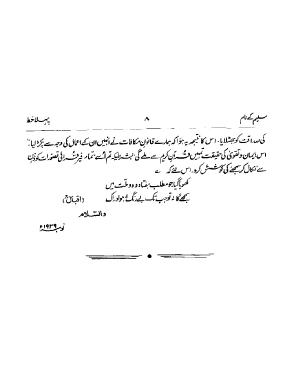 سلیم کے نام ۸ پہلا خط
کی صداقت کو جھٹلایا۔ اس کا نتیجہ یہ ہوا کہ ہمارے قانونِ مکافات نے انہیں ان کے اعمال کی وجہ سے پکڑ لیا۔"
اس ایمان و تقویٰ کی حقیقت تمہیں قرآنِ کریم سے ملے گی بشرطیکہ تم اسے تمام غیر قرآنی تصورات کو ذہن
سے نکال کر سمجھنے کی کوشش کرو۔ اس لئے کہ
کھویا گیا جو مطلب ہفتاد و دو ملت میں
سمجھے گا نہ تو جب تک بے رنگ نہ ہو ادراک (اقبالؒ)
والسلام
۱۹۳۹ء